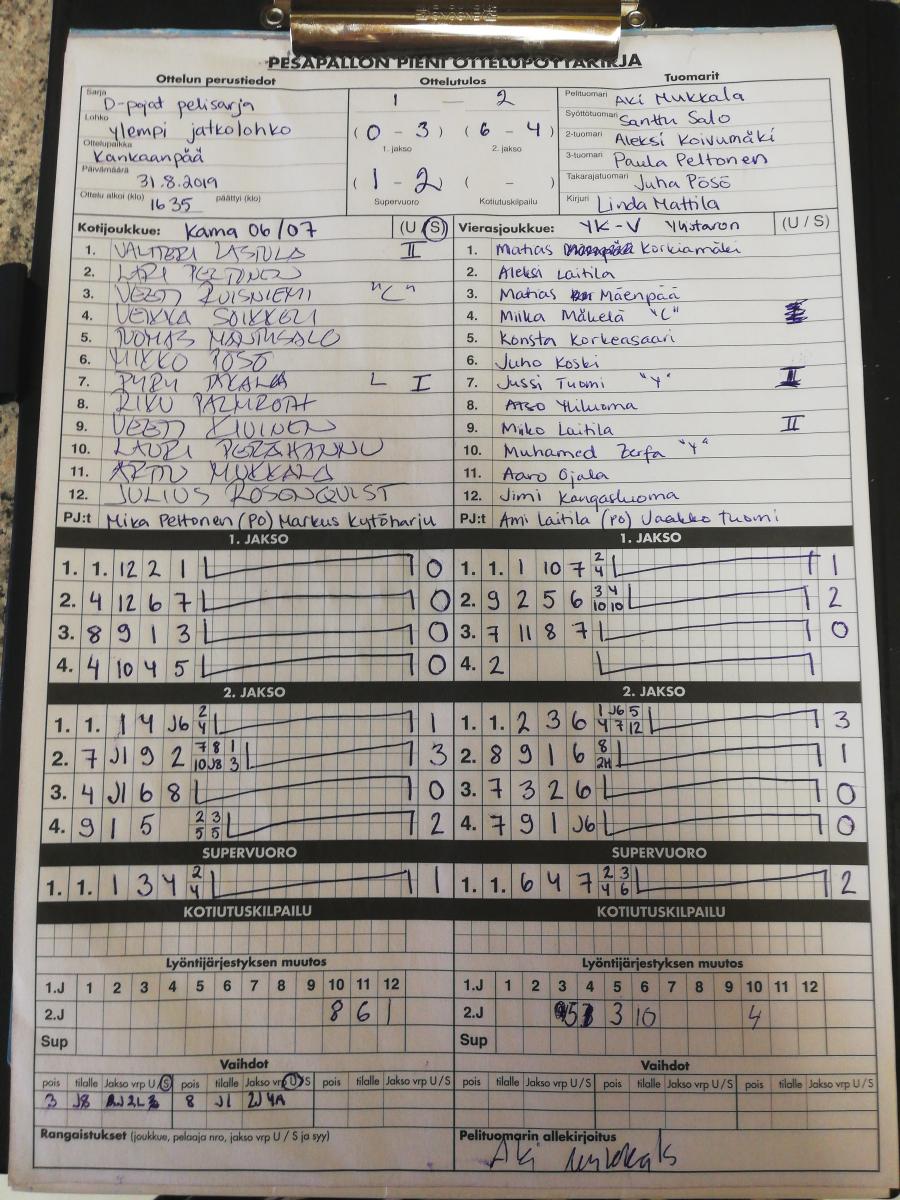 PESÄPALLON PIENI OTTELUPÖYTÄKIRJA
Ottelun perustiedot
Ottelutulos
Tuomarit
Sarja D-pojat pelisarja
Lohko ylempi jatkolohko
Ottelupaikka Kankaanpää
Päivämäärä 31.8.2019
Ottelu alkoi (klo) 16 35 päättyi (klo)
1 — 2
( 0 - 3 ) ( 6 - 4 )
1. jakso 2. jakso
( 1 - 2 ) ( - )
Supervuoro Kotiutuskilpailu
Pelituomari Aki Mukkala
Syöttötuomari Santtu Salo
2-tuomari Aleksi Koivumäki
3-tuomari Paula Peltonen
Takarajatuomari Juha Pösö
Kirjuri Linda Mattila
Kotijoukkue: Kama 06/07 (U / S)
1. VALTTERI LASSILA II
2. LARI PELTONEN
3. VEETI RUISNIEMI "C"
4. VEIKKA SOIKKELI
5. TUOMAS MANTUSALO
6. MIKKO PÖSÖ
7. TAKALA L I
8. RIKU PALMROTH
9. VEETI
10. LAURI PERÄHANNU
11. ARTTU MUKKALA
12. JULIUS ROSENQUIST
PJ:t Mika Peltonen (PO) Markus Kytöharju
Vierasjoukkue: YK-V Ylistaron (U / S)
1. Matias Korkiamäki
2. Aleksi Laitila
3. Matias Mäenpää
4. Miika Mäkelä "C"
5. Konsta Korkeasaari
6. Juho Koski
7. Jussi Tuomi "Y" II
8. Atso Yliluoma
9. Miko Laitila II
10. Muhamed Zerfa "Y"
11. Aaro Ojala
12. Jimi Kangasluoma
PJ:t Ami Laitila (PO) Jaakko Tuomi
1. JAKSO
1. 1. 12 2 1 0
2. 4 12 6 7 0
3. 8 9 1 3 0
4. 4 10 4 5 0
1. JAKSO
1. 1. 1 10 7 2 4 1
2. 9 2 5 6 3 4 10 10 2
3. 7 11 8 7 0
4. 2
2. JAKSO
1. 1. 1 4 J6 2 4 1
2. 7 J1 9 2 7 8 1 10 J8 3 3
3. 4 J1 6 8 0
4. 9 1 5 2 3 5 5 2
2. JAKSO
1. 1. 2 3 6 1 J6 5 4 7 12 3
2. 8 9 1 6 8 2H 1
3. 7 3 2 6 0
4. 7 9 1 J6 0
SUPERVUORO
1. 1. 1 3 4 2 4 1
SUPERVUORO
1. 1. 6 4 7 2 3 4 6 2
KOTIUTUSKILPAILU
KOTIUTUSKILPAILU
Lyöntijärjestyksen muutos
1.J 1 2 3 4 5 6 7 8 9 10 11 12
2.J 8 6 1
Sup
Lyöntijärjestyksen muutos
1.J 1 2 3 4 5 6 7 8 9 10 11 12
2.J 5 3 10 4
Sup
Vaihdot
pois tilalle Jakso vrp U / S pois tilalle Jakso vrp U / S pois tilalle Jakso vrp U / S
3 J8 8 J1 2J 4A
Vaihdot
pois tilalle Jakso vrp U / S pois tilalle Jakso vrp U / S pois tilalle Jakso vrp U / S
Rangaistukset (joukkue, pelaaja nro, jakso vrp U / S ja syy)
Pelituomarin allekirjoitus
Aki